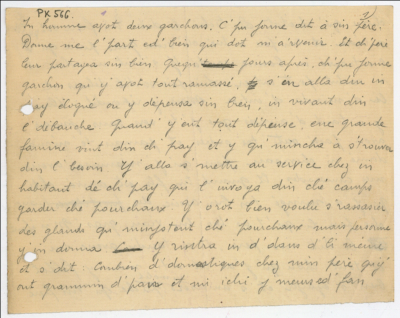 PK 566. 1/
In homme avot deux garchons. L' pu jonne dit à sin père.
Donne me l' part ed' bien qui dot m'arvenir. Et ch' père
leur partagea sin bien. Quequ' jours après, ch' pu jonne
garchon qui y avot tout ramassé, s'en alla din un
pay éloigné ou y dépensa sin bien, in vivant din
l' débauche. Quand y eut tout dépensé, ene grande
famine vint din ch' pay et y qu'minche à s'trouver
din l' besoin. Y alla s'mettre au service chez un
habitant dé ch' pay qui l'invoya din ché camps
garder ché pourchaux. Y orot bien voulu s'rassasier
des glands qu' minjotent ché pourchaux mais personne
y'in donna. Y rintra in d'dans d'li meume
et s'dit. Combien d'domestiques chez min père qu'y
ont grammin d'pain et mi ichi y meurs ed' fan